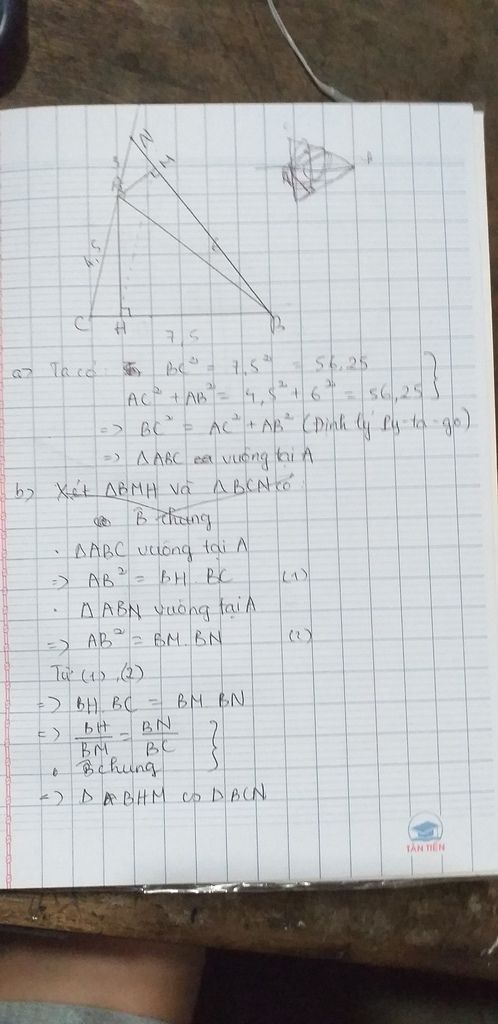 N
M
3
A
4,5
6
C
H
B
7,5
a> Ta có BC² = 7,5² = 56,25
AC² + AB² = 4,5² + 6² = 56,25 }
=> BC² = AC² + AB² (Định lý Py-ta-go)
=> ΔABC vuông tại A
b> Xét ΔBMH và ΔBCN có
B chung
. ΔABC vuông tại A
=> AB² = BH. BC (1)
. ΔABN vuông tại A
=> AB² = BM. BN (2)
Từ (1), (2)
=> BH. BC = BM. BN
=> BH/BM = BN/BC }
. B chung
=> Δ BHM ∽ ΔBCN
TÂN TIẾN